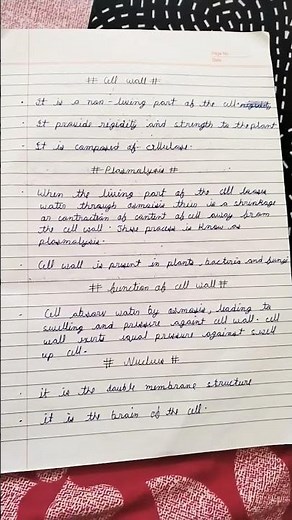 Page No.
Date
# Cell wall #
• It is a non-living part of the cell.
• It provide rigidity and strength to the plant
• It is composed of cellulose.
# Plasmalysis #
• When the living part of the cell looses
water through osmosis their is a shrinkage
or contraction of content of cell away from
the cell wall. These process is know as
plasmalysis.
• Cell wall is present in plants, bacteria and fungi
# function of cell wall #
• Cell absorv water by osmosis, leading to
swelling and pressure againt cell wall. cell
wall exerts equal pressure against swell
up cell.
# Nucleus #
• it is the double membrane structure
• it is the brain of the cell.